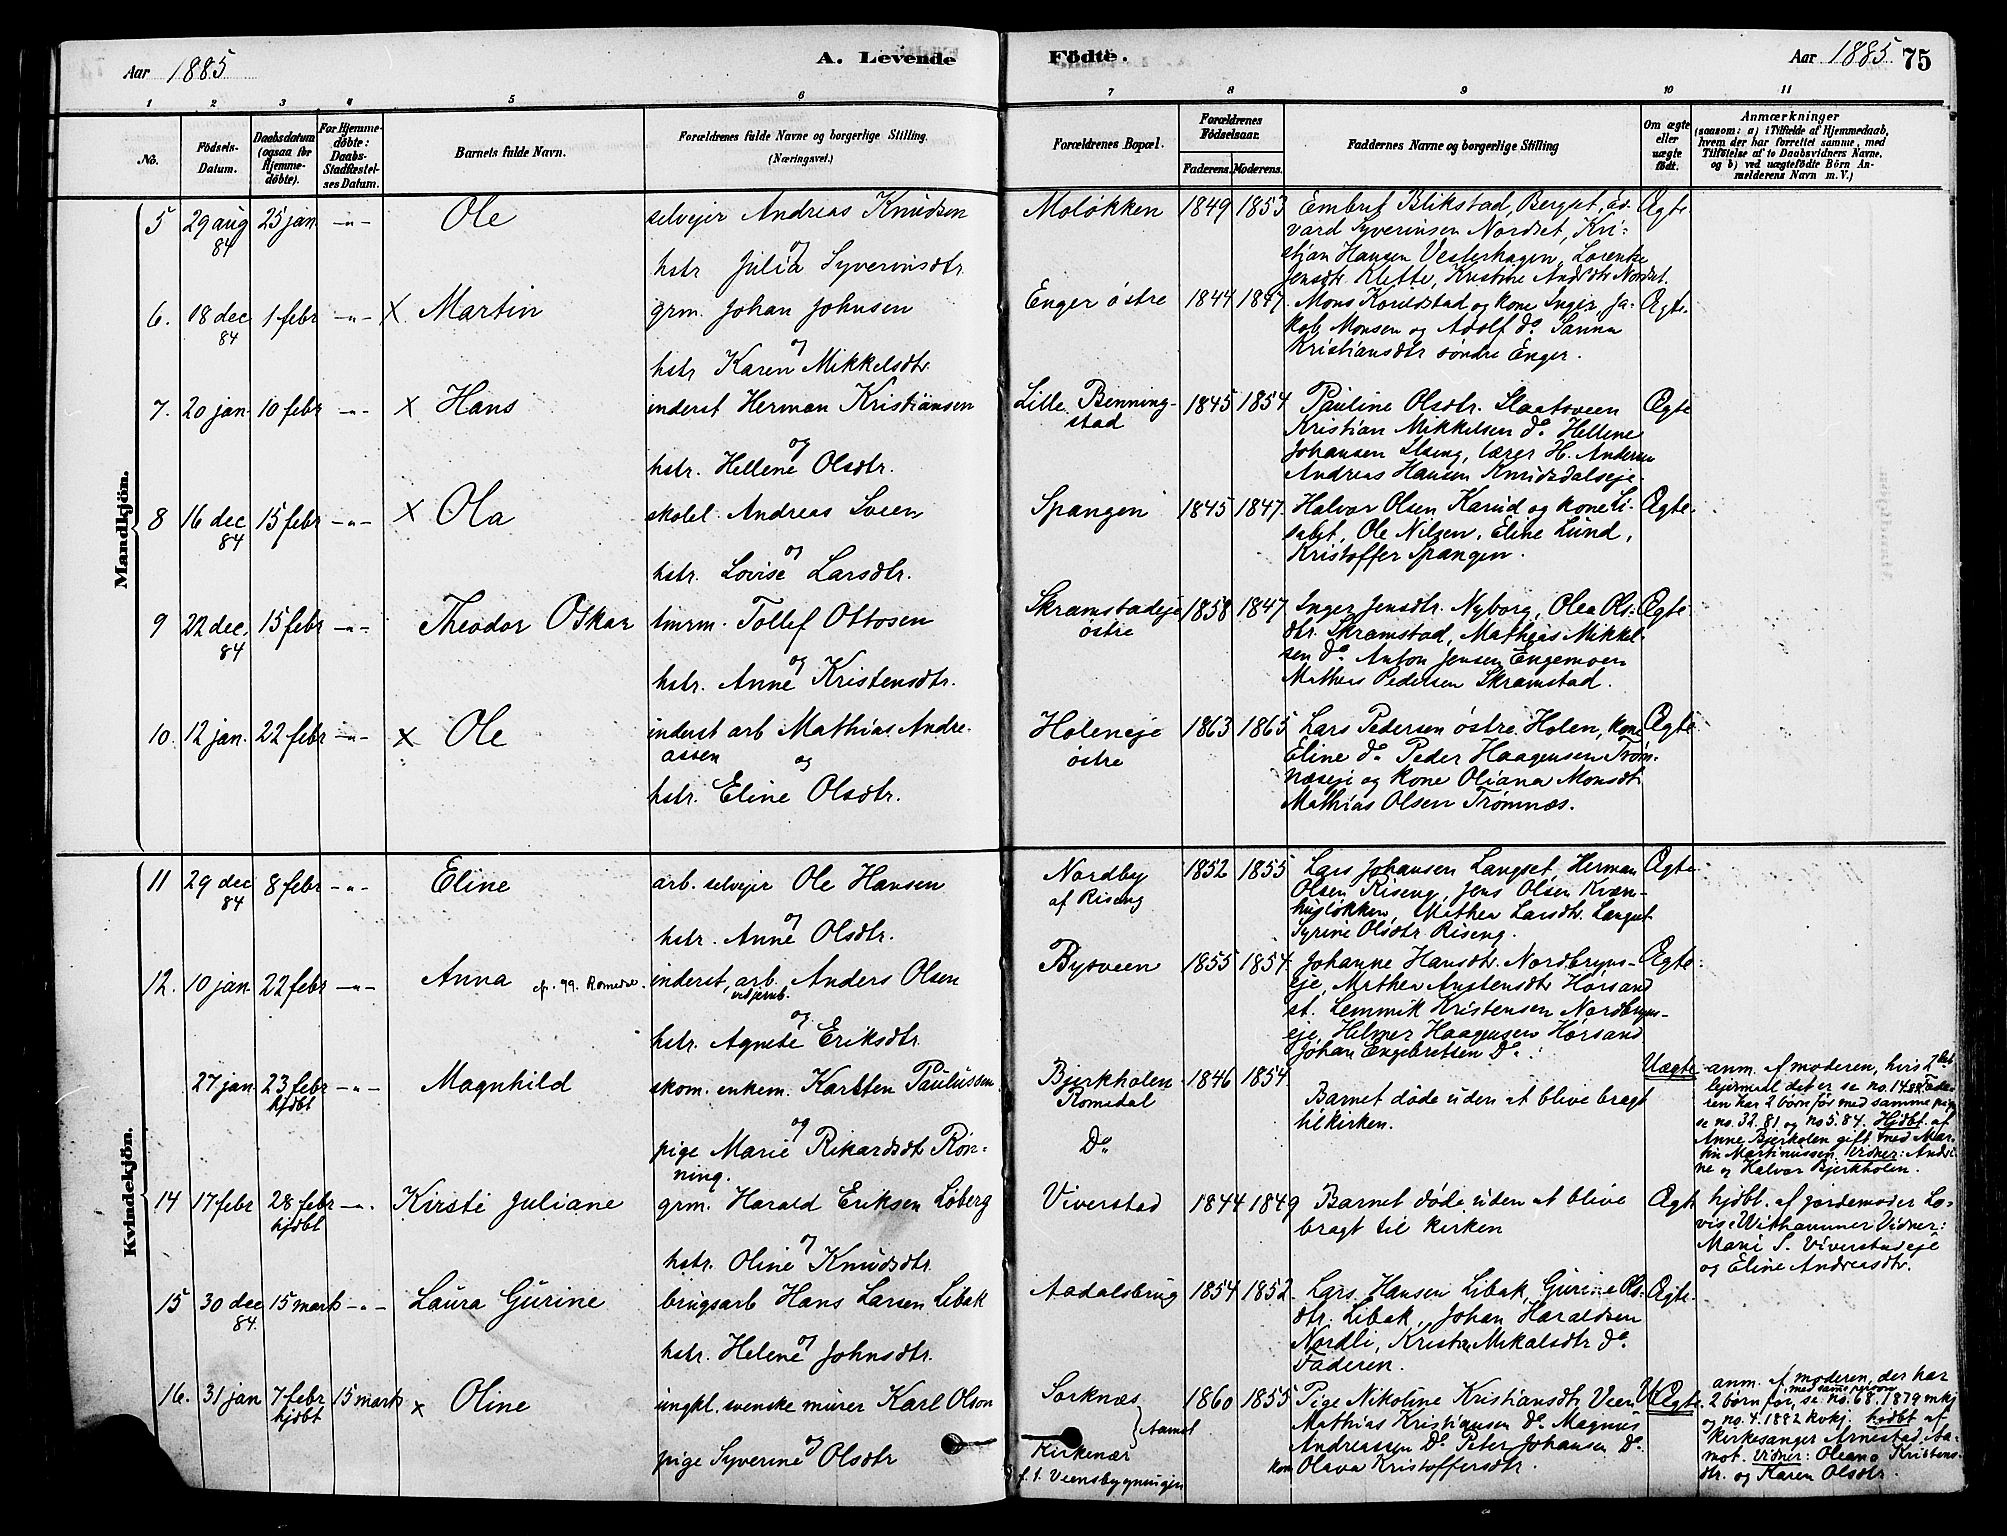 Aar 1885
A. Levende
Fødte.
Aar 1885
75
1 2 3 4 5 6 7 8 9 10 11
No.
Fødsels-
Datum.
Daabsdatum
(ogsaa for
Hjemme-
døbte).
For Hjemme-
døbte:
Daabs-
Stadfæstel-
ses Datum.
Barnets fulde Navn.
Forældrenes fulde Navne og borgerlige Stilling.
(Næringsvei.)
Forældrenes Bopæl.
Forældrenes
Fødselsaar.
Faderens. Moderens.
Faddernes Navne og borgerlige Stilling
Om ægte
eller
uægte
født.
Anmærkninger
(saasom: a) i Tilfælde af Hjemmedaab,
hvem der har forrettet samme, med
Tilføielse af to Daabsvidners Navne,
og b) ved uægtefødte Børn An-
melderens Navn m. V.)
Mandkjön.
5 29 aug 84 25 jan. -"- Ole
selvejer Andreas Knudsen
og
hstr Julia Syverinsdtr
Moløkken 1849 1853
Embret Blikstad, Berget, Ed-
vard Syverinsen Nordset, Kri-
stjan Hansen Vesterhagen, Lorentse
Jensdtr Klette, Kristine Andrdtr Nordset.
Ægte
6. 18 dec 84 1 febr -"- X Martin
grm. Johan Johnsen
og
hstr Karen Mikkelsdtr
Enger østre 1844 1847
Mons Koreldstad og kone Inger, Ja-
kob Monsen og Adolf do Sanna
Kristiansdtr søndre Enger.
Ægte.
7. 20 jan. 10 febr -"- X Hans
inderst Herman Kristiansen
og
hstr. Hellene Olsdtr.
Lille Benning-
stad
1845 1854
Pauline Olsdtr. Slaatsveen
Kristian Mikkelsen do Hellene
Johansen Ilseng, lærer H. Andersen
Andreas Hansen Knudsdalseje.
Ægte
8 16 dec 84 15 febr -"- X Ola
skolel. Andreas Sveen
og
hstr. Lovise Larsdtr.
Spangen 1845 1847
Halvor Olsen Karud og kone Li-
sabet, Ole Nilsen, Eline Lund,
Kristoffer Spangen.
Ægte.
9 22 dec. 84 15 febr -"- Theodor Oskar
tmrm. Tollef Ottosen
og
hstr. Anne Kristensdtr.
Skramstadeje
østre
1858 1847
Inger Jensdtr. Nyborg, Olea Ols-
dtr. Skramstad, Mathias Mikkel-
sen do Anton Jensen Engemoen
Mathias Pedersen Skramstad.
Ægte
10. 12 jan. 22 febr -"- X Ole
inderst arb Mathias Andre-
assen
og
hstr. Eline Olsdtr.
Holeneje
østre
1863 1865
Lars Pedersen østre Holen, kone
Eline do Peder Haagensen Trøm-
næseje og kone Oliana Monsdtr
Mathias Olsen Trømnæs.
Ægte
Kvindekjön.
11 29 dec 84 8 febr -"- Eline
arb. selvejer Ole Hansen
og
hstr. Anne Olsdtr.
Nordby
af Riseng
1852 1855
Lars Johansen Langset, Herman
Olsen Riseng, Jens Olsen Kvæn-
husløkken, Mathea Larsdtr. Langset
Syrine Olsdtr Riseng.
Ægte
12. 10 jan 22 febr -"- Anna cfr. 99. Romedal.
inderst, arb. Anders Olsen
ved jernb.
og
hstr. Agnete Eriksdtr
Bysveen 1855 1854
Johanne Hansdtr. Nordbryns-
eje, Mathea Austensdtr Horsand
st. Lemmik Kristensen Nordbryns-
eje, Helmer Haagensen Horsand
Johan Engebretsen Do.
Ægte
27 jan 23 febr hjdbt -"- Magnhild
skom. enkem. Karsten Paulussen
og
pige Marie Rikardsdtr Røn-
ning.
Bjerkholen
Romedal
Do
1846 1854
Barnet døde uden at blive bragt
til kirken.
Uægte
anm. af moderen, hvis 2det
lejermaal det er se no. 14
ren har 2 børn før med samme pige
se no. 32. 81 og no 5. 84. Hjdbt. af
Anne Bjerkolen gift med Mar-
tin Martinussen. Vidner: Andri-
ne og Halvor Bjerkholen.
14 17 febr 28 febr hjdbt -"- Kirsti Juliane
grm. Harald Eriksen Løberg
og
hstr. Oline Knudsdtr.
Viverstad 1844 1849
Barnet døde uden at blive
bragt til kirken
Ægte
hjdbt. af jordemoder Lo-
vise Withammer Vidner:
Mari S. Viverstadeje
og Eline Andreasdtr.
15 30 dec 84. 15 marts -"- Laura Gurine
brugsarb Hans Larsen Libak
og
hstr. Helene Johnsdtr.
Aadalsbrug 1854 1852
Lars Hansen Libak, Gurine Ols-
dtr. Libak, Johan Haraldsen
Nordli, Kristn Mikalsdtr do
Faderen.
Ægte.
16. 31 jan 7 febr hjdbt 15 marts X Oline
ungkl. svenske murer Karl Olson
og
pige Syverine Olsdtr
Sorknæs
Aamot
Kirkenær
f. t. Veensbygningen
1860 1855
Pige Nikoline Kristiansdtr Veen
Mathias Kristiansen do Magnus
Andreassen do Peter Johansen do
kone Olava Kristoffersdtr.
UÆgte
anm. af moderen, der har
2 børn før, med sams person se no. 68. 1879 mkj
og no. 4. 1882 kvkj. hjdbt af
kirkesanger Arnestad, Aa-
mot. Vidner: Oleana Kristens-
dtr. og Karen Olsdtr.